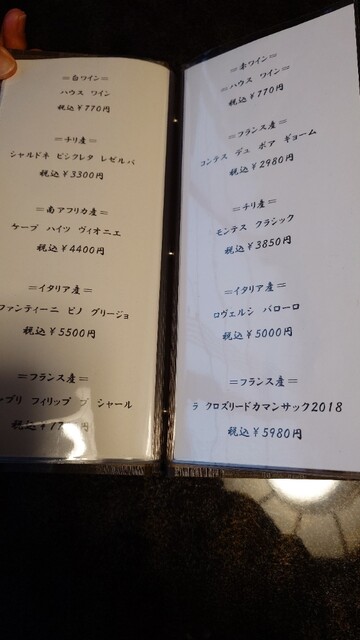 =白ワイン=
ハウス ワイン
税込¥770円
=チリ産=
シャルドネ ビシクレタ レゼルバ
税込¥3300円
=南アフリカ産=
ケープ ハイツ ヴィオニエ
税込¥4400円
=イタリア産=
ファンティーニ ピノ グリージョ
税込¥5500円
=フランス産=
ブリ フィリップ シャール
税込
=赤ワイン=
=ハウス ワイン=
税込¥770円
=フランス産=
コンテス デュ ボア ギョーム
税込¥2980円
=チリ産=
モンテス クラシック
税込¥3850円
=イタリア産=
ロヴェルシ バローロ
税込¥5000円
=フランス産=
ラ クロズリードカマンサック2018
税込¥5980円